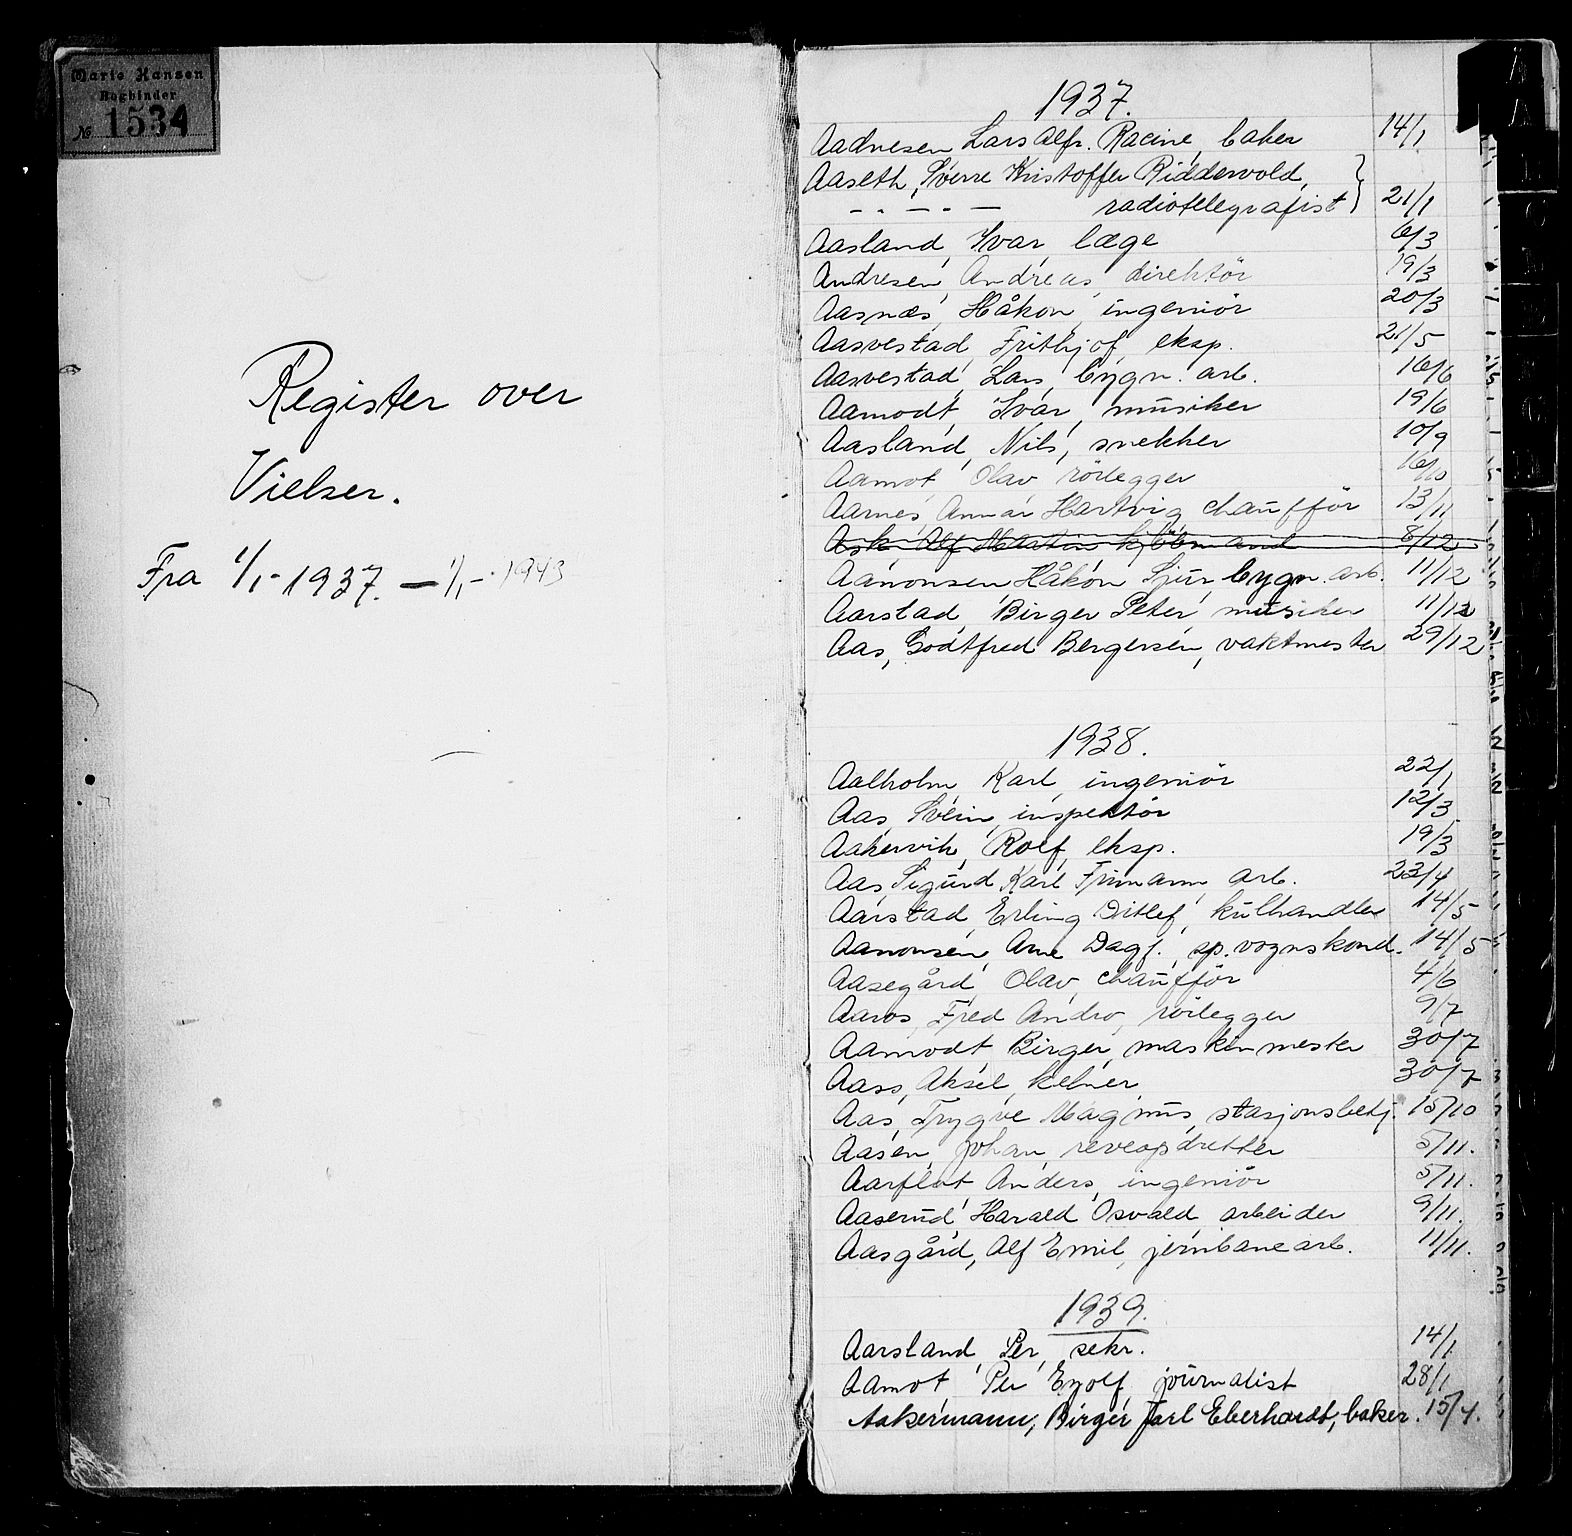 Marie Hansen
Bogbinder
№ 1534
Register over
Vielser.
Fra 1/1-1937. — 1/1-1943
1937.
Aadnesen, Lars Alfr. Racine, baker 14/1
Aaseth, Sverre Kristoffer Ridderwold,
radiotelegrafist 21/1
Aasland, Ivar, læge 6/3
Andresen, Andreas, direktör 19/3
Aasnæs, Håkon, ingeniör 20/3
Aasvestad, Frithjof, eksp. 21/5
Aasvestad, Lars, bygn. arb. 16/6
Aamodt, Ivar, musiker 19/6
Aasland, Nils, snekker 10/9
Aamot, Olav, rörlegger 16/10
Aarnes, Annar Hartvig, chaufför 13/11
Ask, Alf Martin, kjöbmand 8/12
Aanonsen, Håkon Sjur, bygn. arb. 11/12
Aarstad, Birger Peter, musiker 11/12
Aas, Godtfred Bergersen, vaktmester 29/12
1938.
Aalholm, Karl, ingeniör 22/1
Aas, Svein, inspektör 12/3
Aakervik, Rolf, eksp. 19/3
Aas, Sigurd Karl Frimann, arb. 23/4
Aarstad, Erling Ditlef, kulhandler 14/5
Aanonsen, Arne Dagf., sp. vognskond. 14/5
Aasegård, Olav, chaufför 4/6
Aaros, Fred Andro, rörlegger 9/7
Aamodt, Birger, maskinmester 30/7
Aass, Aksel, kelner 30/7
Aas, Trygve Magnus, stasjonsbetj. 15/10
Aasen, Johan, reveopdretter 5/11.
Aarflot, Anders, ingeniör 5/11.
Aaserud, Harald Osvald, arbeider 9/11.
Aasgård, Alf Emil, jernbanearb. 11/11.
1939.
Aarsland, Per, sekr. 14/1
Aamot, Per Eyolf, journalist 28/1
Aakermann, Birger Jarl Eberhardt, baker. 15/4.